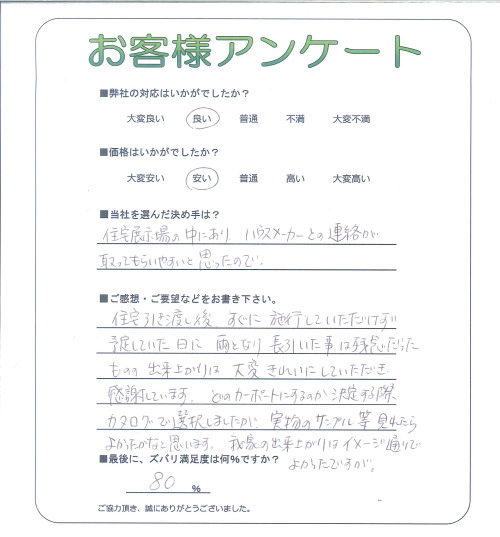 お客様アンケート
■弊社の対応はいかがでしたか？
大変良い 良い 普通 不満 大変不満
■価格はいかがでしたか？
大変安い 安い 普通 高い 大変高い
■当社を選んだ決め手は？
住宅展示場の中にあり ハウスメーカーとの連絡が
取ってもらいやすいと思ったので。
■ご感想・ご要望などをお書き下さい。
住宅引き渡し後、すぐに施行していただけず
予定していた日に 雨となり 長引いた事は残念だった
ものの 出来上がりは 大変きれいにしていただき
感謝しています。どのカーポートにするのか決定する際、
カタログで選択しましたが、実物のサンプル等見れたら
よかったかなと思います。我家の出来上がりはイメージ通りで
よかったですが。
■最後に、ズバリ満足度は何％ですか？
80 ％
ご協力頂き、誠にありがとうございました。